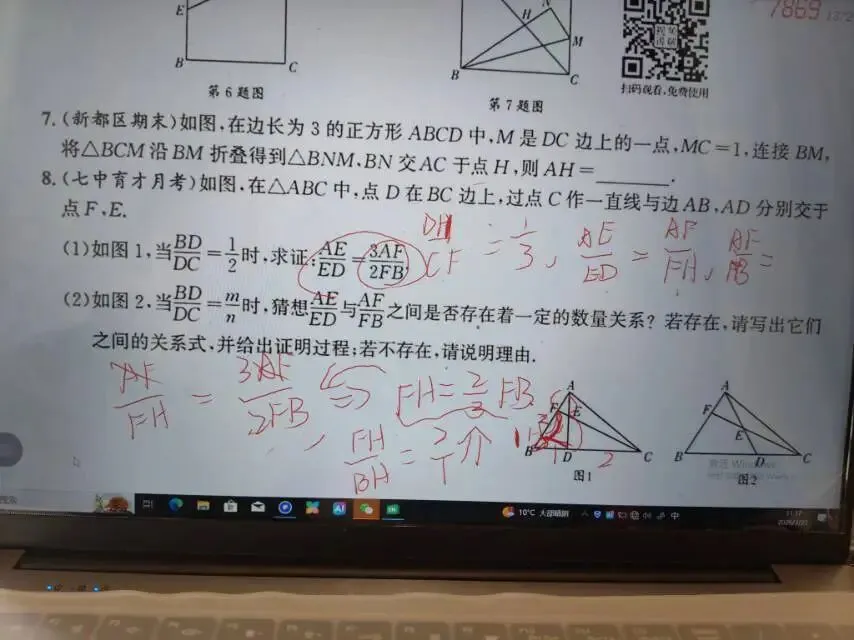 E
B
C
第6题图
H
N
M
B
C
第7题图
扫码观看,免费使用
7869
7.(新都区期末)如图,在边长为3的正方形ABCD中,M是DC边上的一点,MC=1,连接BM,
将△BCM沿BM折叠得到△BNM,BN交AC于点H,则AH=______.
8.(七中育才月考)如图,在△ABC中,点D在BC边上,过点C作一直线与边AB、AD分别交于
点F、E.
(1)如图1,当BD/DC=1/2时,求证:AE/ED=3AF/2FB.
DH/CF=1/3、AE/ED=AF/FH,AF/FB=
(2)如图2,当BD/DC=m/n时,猜想AE/ED与AF/FB之间是否存在着一定的数量关系?若存在,请写出它们
之间的关系式,并给出证明过程;若不存在,请说明理由.
AF/FH=3AF/2FB⇒FH=2/3FB
FH/BH=2/1
A
F
E
B
D
C
2
图1
A
F
E
B
D
C
图2
激活 Windows
10°C 大部晴朗
中
11:17